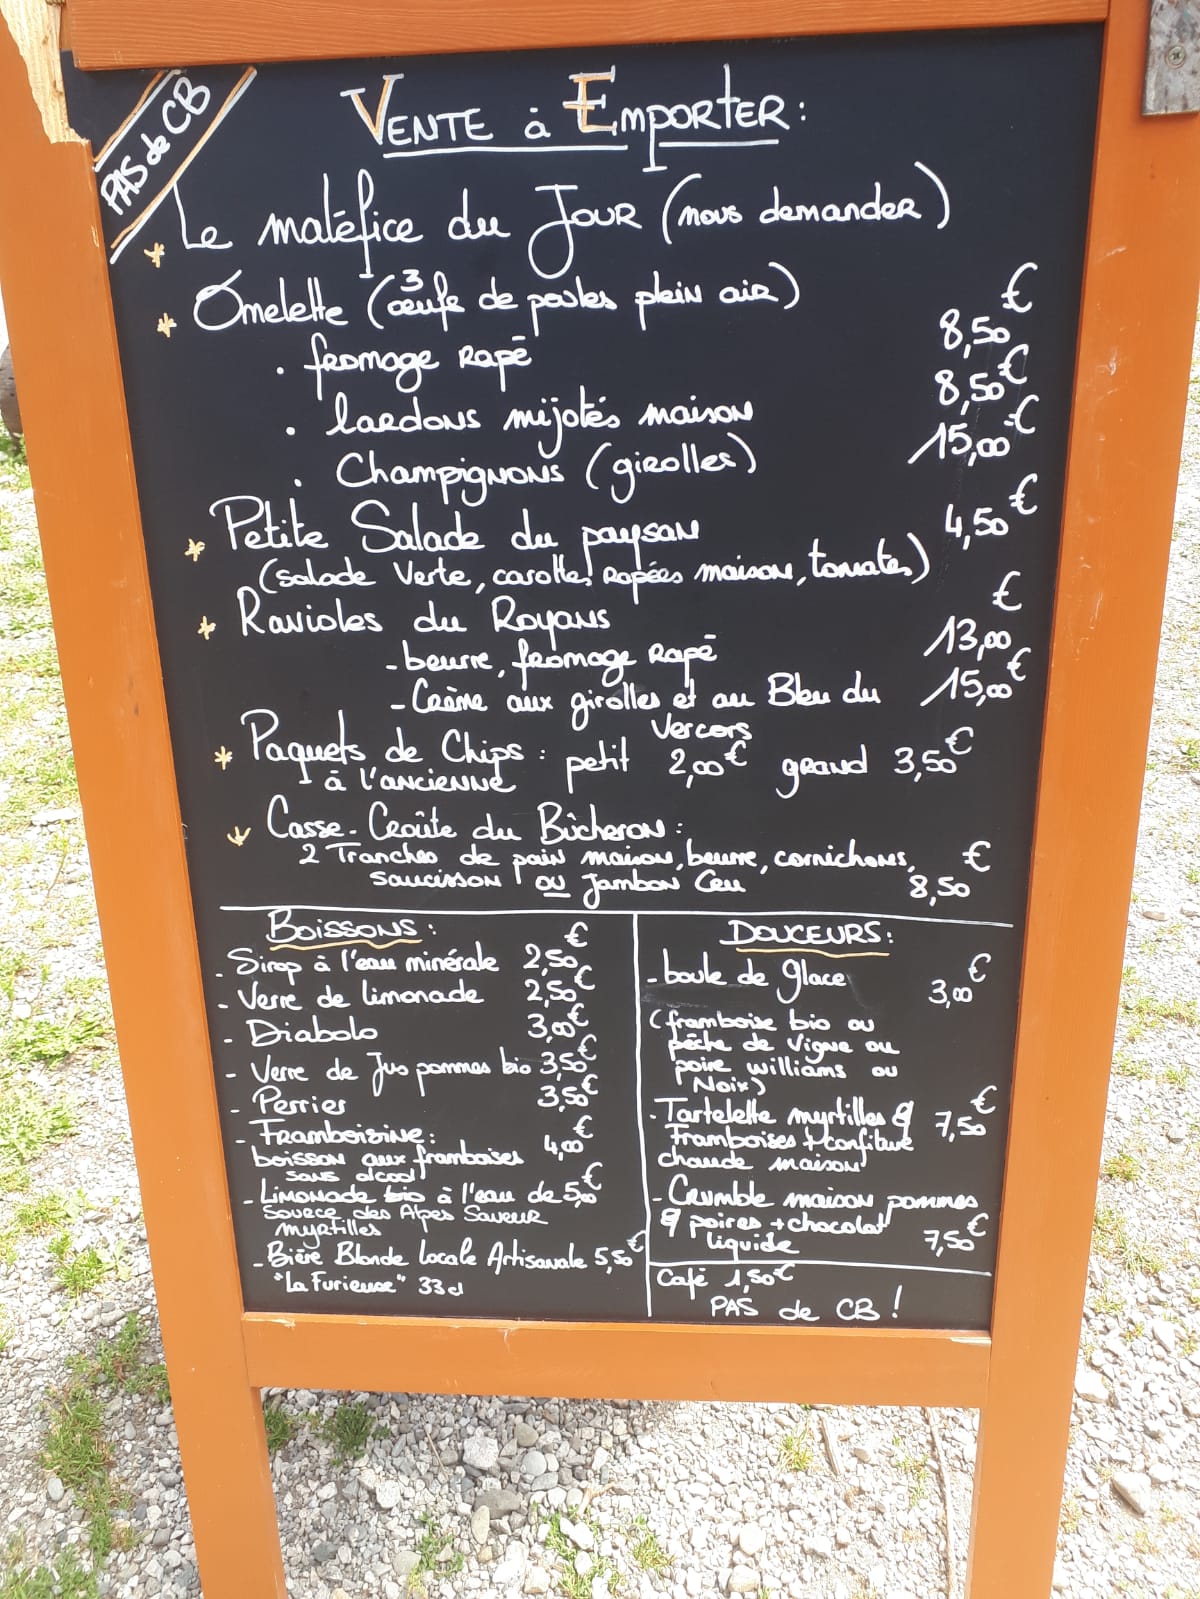 PAS de CB
VENTE à EMPORTER:
* Le maléfice du JOUR (nous demander)
* Omelette (3 œufs de poules plein air) €
. fromage RAPÉ 8,50
. lardons mijotés maison 8,50€
. Champignons (girolles) 15,00€
* Petite Salade du paysan 4,50€
(salade Verte, carottes Rapées maison, tomates)
* Ravioles du Royans €
- beurre, fromage Rapé 13,00
- Crème aux girolles et au Bleu du Vercors 15,00€
* Paquets de Chips : petit 2,00€ grand 3,50€
à l'ancienne
* Casse-Croûte du Bûcheron:
2 Tranches de pain maison, beurre, cornichons, €
saucisson ou Jambon Cru 8,50
BOISSONS: €
- Sirop à l'eau minérale 2,50
- Verre de limonade 2,50€
- Diabolo 3,00€
- Verre de Jus pommes bio 3,50€
- Perrier 3,50€
- Framboisine: €
boisson aux framboises 4,00
sans alcool
- Limonade bio à l'eau de 5,00€
Source des Alpes Saveur
myrtilles
- Bière Blonde locale Artisanale 5,50€
"La Furieuse" 33cl
DOUCEURS:
- boule de glace 3,00€
(framboise bio ou
pêche de Vigne ou
poire williams ou
Noix)
- Tartelette myrtilles & 7,50€
Framboises + confiture
chaude maison
- Crumble maison pommes
& poires + chocolat
liquide 7,50€
Café 1,50€
PAS de CB !